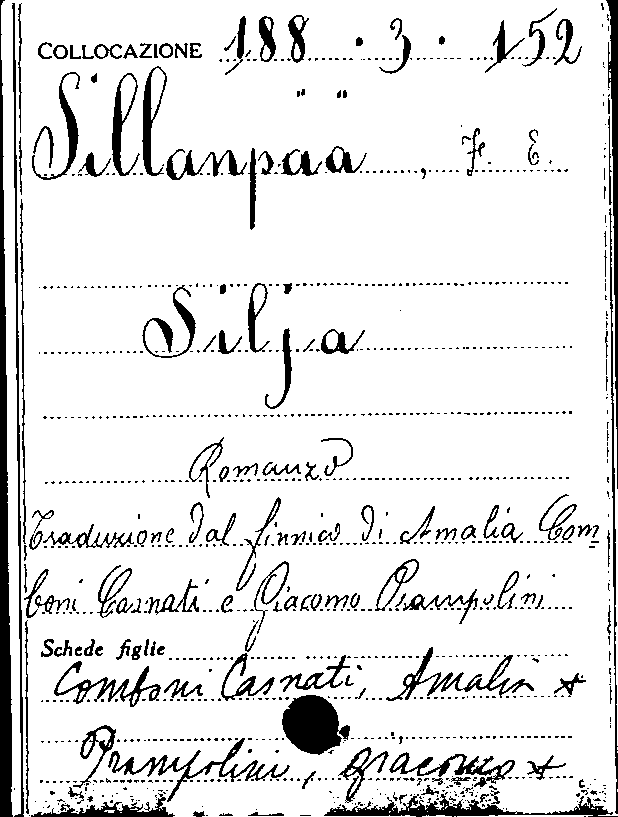 COLLOCAZIONE 188 . 3 . 152
Sillanpää , F. E.
Silja
Romanzo
Traduzione dal finnico di Amalia Com=
boni Casnati e Giacomo Prampolini
Schede figlie
Comboni Casnati, Amalia +
Prampolini, Giacomo +